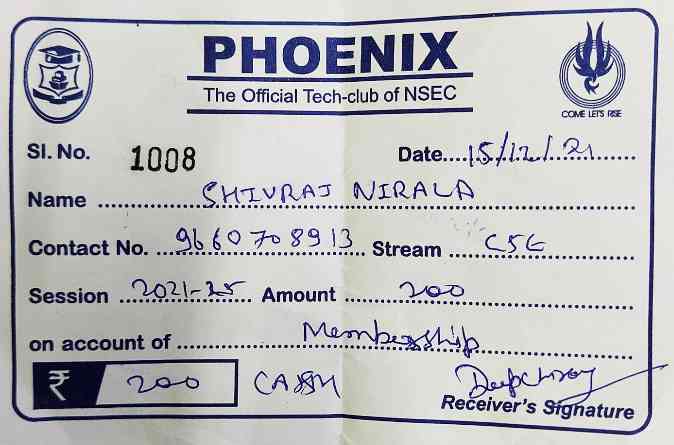 PHOENIX
The Official Tech-club of NSEC
COME LET'S RISE
Sl. No. 1008 Date....15/12/21
Name SHIVRAJ NIRALA
Contact No. 9660708913 Stream CSE
Session 2021-25 Amount 200
on account of Membership
₹ 200 CASH
Receiver's Signature